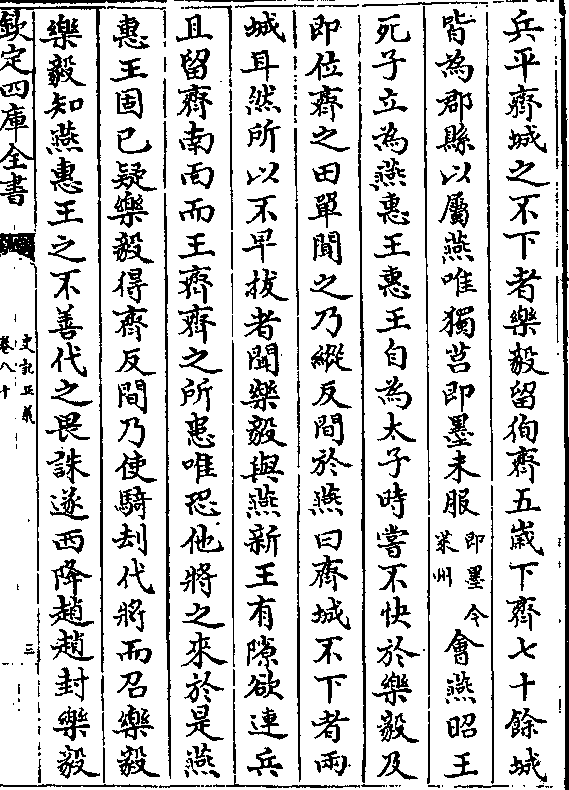 兵平齊城之不下者樂毅留徇齊五歲下齊七十餘城
皆為郡縣以屬燕唯獨莒即墨未服
即墨今
萊州
會燕昭王
死子立為燕惠王惠王自為太子時嘗不快於樂毅及
即位齊之田單聞之乃縱反間於燕曰齊城不下者兩
城耳然所以不早拔者聞樂毅與燕新王有隙欲連兵
且留齊南面而王齊齊之所患唯恐他將之來於是燕
惠王固已疑樂毅得齊反間乃使騎劫代將而召樂毅
樂毅知燕惠王之不善代之畏誅遂西降趙趙封樂毅
欽定四庫全書
史記正義
卷八十
三